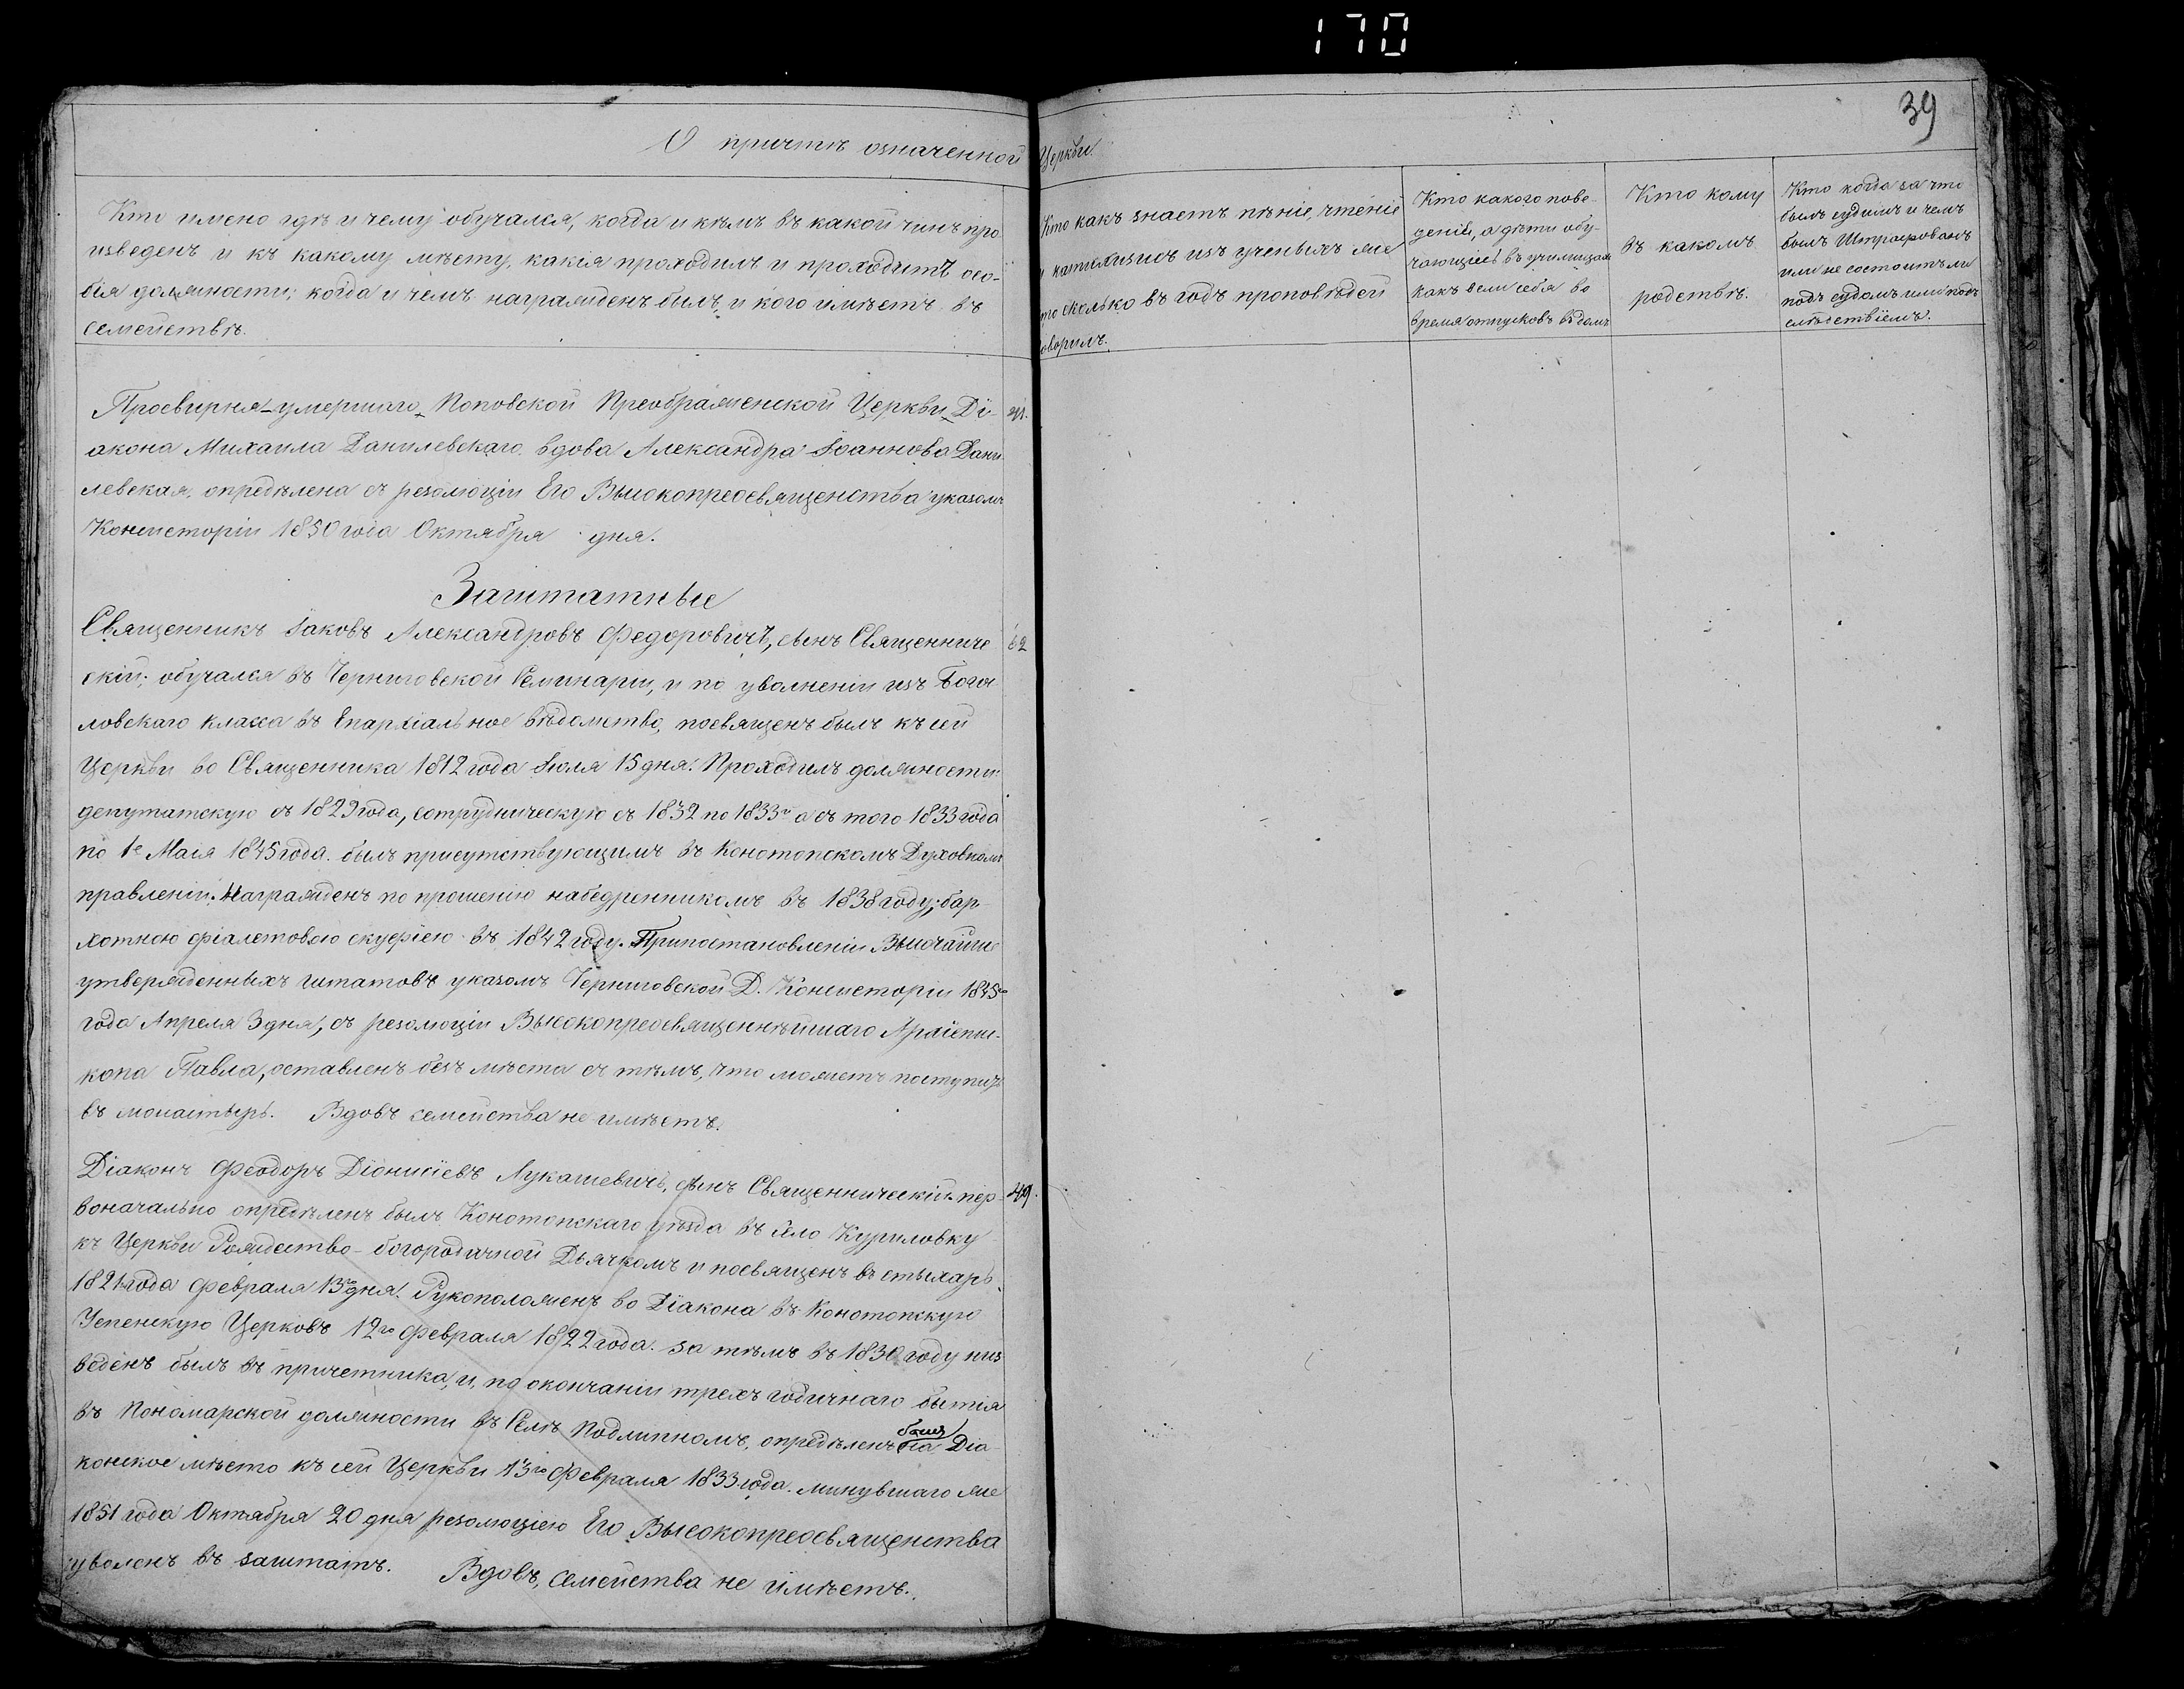 170
39
О причтѣ означенной Церкви.
Кто имено гдѣ и чему обучался, когда и кѣмъ въ какой чинъ про
изведенъ и къ какому мѣсту, какія проходилъ и проходитъ осо-
бія должности; когда и чемъ награжденъ былъ, и кого имѣетъ въ
семействѣ.
Кто какъ знаетъ пѣніе, чтеніе
и катихизисъ изъ ученыхъ же
то сколько въ годъ проповѣдей
оворилъ.
Кто какого пове-
денія, а дѣти обу-
чающіеся въ училищахъ
какъ вели себя во
время отпусковъ въ домъ
Кто кому
въ какомъ
родствѣ.
Кто когда за что
былъ судимъ и чемъ
былъ Штрафованъ
или не состоитъ ли
подъ судомъ или подъ
слѣдствіемъ.
Просвирня умершаго Поповской Преображенской Церкви Ді- 41.
акона Михаила Данилевскаго вдова Александра Іоаннова Дани
левская, опредѣлена съ резолюціи Его Высокопреосвященства указомъ
Консисторіи 1850 года Октября дня.
Заштатные
Священникъ Іаковъ Александровъ Федоровичъ, сынъ Священниче 62
скій; обучался въ Черниговской Семинаріи, и по уволненіи изъ Богос
ловскаго класса въ Епархіальное вѣдомство, посвященъ былъ къ сей
Церкви во Священника 1812 года Іюля 15 дня. Проходилъ должности:
депутатскую съ 1829 года, сотрудническую съ 1832 по 1833й а съ того 1833 года
по 1е Маія 1845 года. былъ присутствующимъ въ Конотопскомъ Духовномъ
правленіи. Награжденъ по прошенію набедренникомъ въ 1838 году; бар-
хотною фіалетовою скуфіею въ 1842 году. Припостановленіи Высочайше
утвержденныхъ штатовъ указомъ Черниговской Д. Консисторіи 1845го
года Апреля 3 дня, съ резолюціи Высокопреосвященнѣйшаго Архіепис-
копа Павла, оставленъ безъ мѣста съ тѣмъ, что можетъ поступить
въ монастырь. Вдовъ семейства не имѣетъ.
Діаконъ Феодоръ Діонисіевъ Лукашевичъ, сынъ Священническій. пер- 49.
воначально опредѣленъ былъ Конотопскаго уѣзда въ село Куриловку
къ Церкви Рождество-богородичной Дьячкомъ и посвященъ въ стыхарь
1821 года Февраля 13го дня. Рукоположенъ во Діакона въ Конотопскую
Успенскую Церковъ 12го Февраля 1822 года. за тѣмъ въ 1830 году низ
веденъ былъ въ причетника, и, по окончаніи трехъ годичнаго бытія
въ Пономарской должности въ Селѣ Подлипномъ, опредѣленъ былъ на Діа-
конское мѣсто къ сей Церкви 13го Февраля 1833 года. минувшаго же
1851 года Октября 20 дня резолюціею Его Высокопреосвященства
уволенъ въ заштатъ. Вдовъ, семейства не имѣетъ.